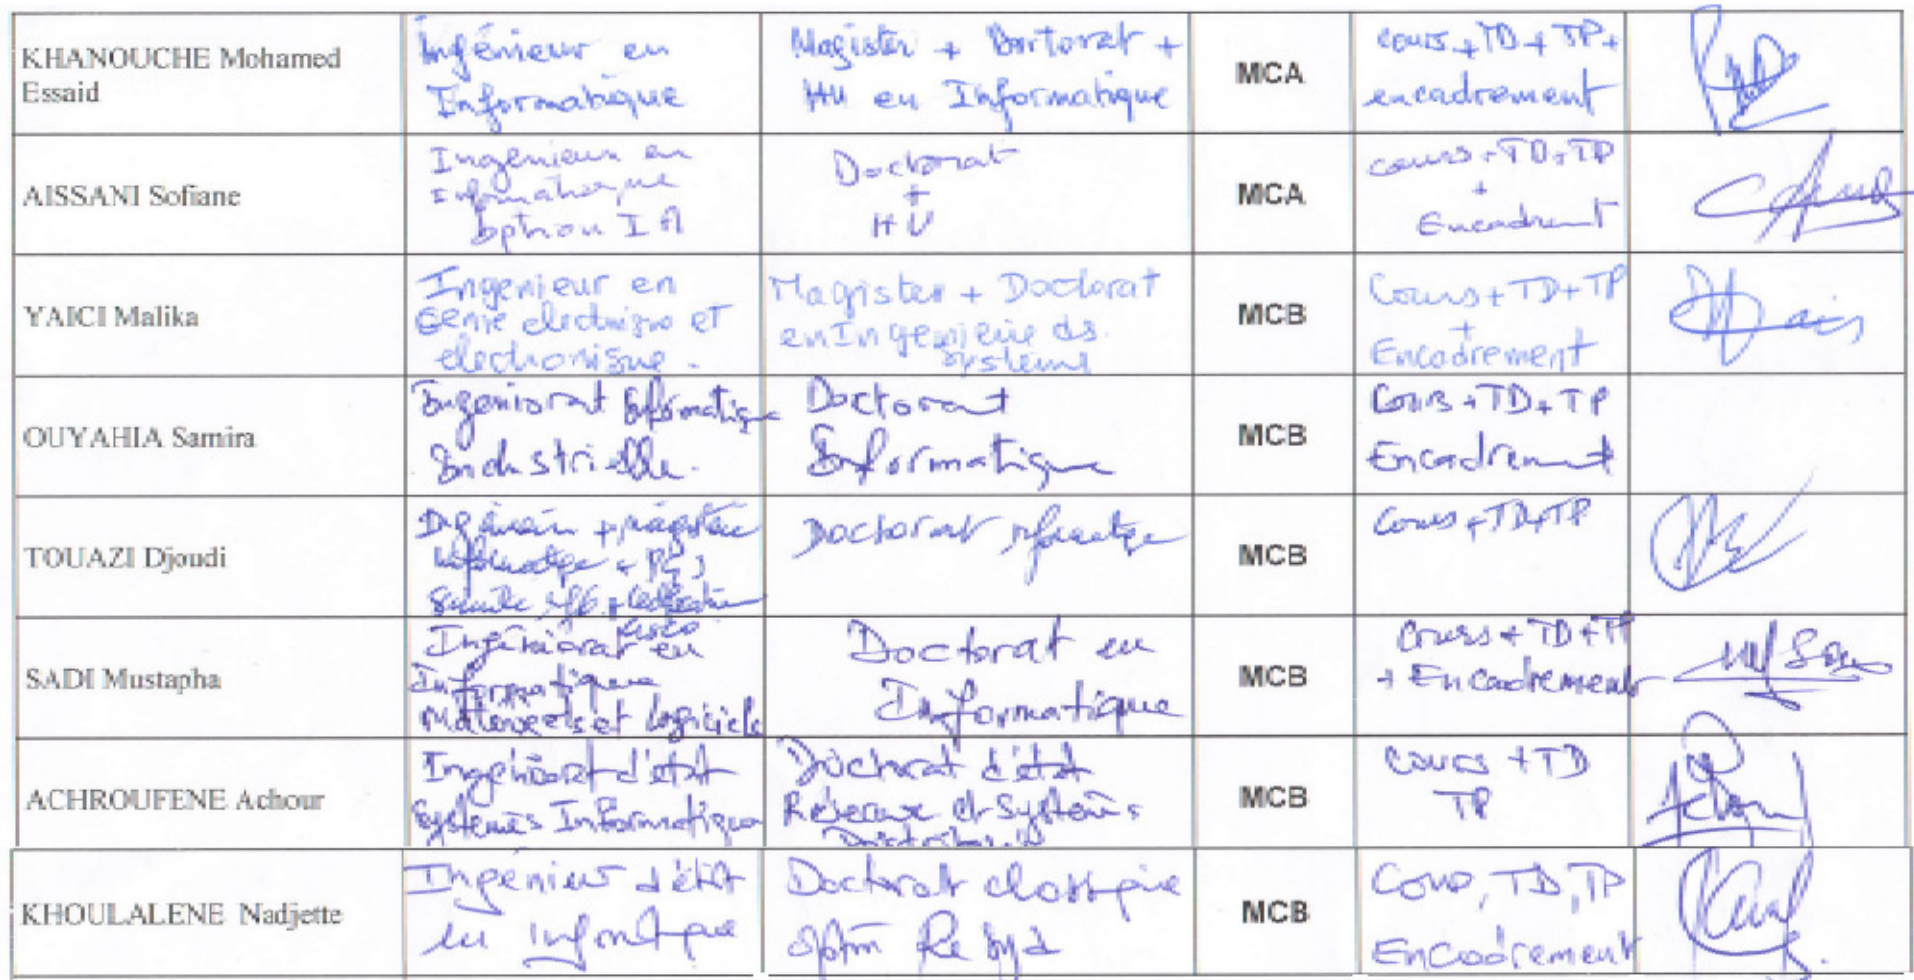 KHANOUCHE Mohamed
Essaid
Ingénieur en
Informatique
Magister + Doctorat +
HU en Informatique
MCA
cours + TD + TP +
encadrement
AISSANI Sofiane
Ingenieur en
Informatique
option IA
Doctorat
+
HU
MCA
cours + TD + TP
+
Encadrement
YAICI Malika
Ingenieur en
Genie electrique et
electronique.
Magister + Doctorat
en Ingenierie ds.
systems
MCB
Cours + TD + TP
+
Encadrement
OUYAHIA Samira
Ingeniorat Informatique
Industrielle.
Doctorat
Informatique
MCB
Cours + TD + TP
Encadrement
TOUAZI Djoudi
+ magister
Doctorat
MCB
Cours + TD + TP
SADI Mustapha
Ingéniorat en
Informatique
Materiels et logiciels
Doctorat en
Informatique
MCB
Cours + TD + TP
+ Encadrement
ACHROUFENE Achour
Ingéniorat d'état
Systèmes Informatiques
Doctorat d'état
Réseaux et Systèmes
MCB
Cours + TD
TP
KHOULALENE Nadjette
Ingénieur d'état
en informatique
Doctorat classique
option
MCB
Cours, TD, TP
Encadrement